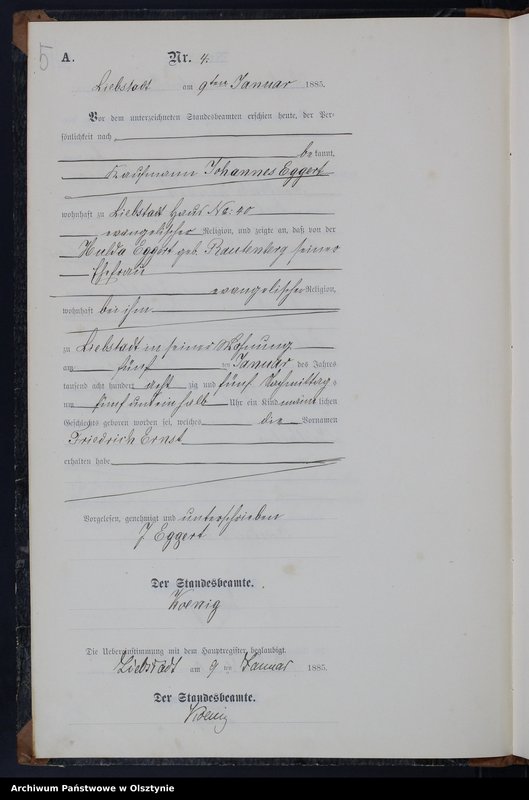 5
A. Nr. 4.
Liebstadt am 9ten Januar 1885.
Vor dem unterzeichneten Standesbeamten erschien heute, der Per-
sönlichkeit nach
be kannt,
Kaufmann Johannes Eggert
wohnhaft zu Liebstadt Haus No: 40
evangelischer Religion, und zeigte an, daß von der
Hulda Eggert geb. Rautenberg seiner
Ehefrau
evangelischer Religion,
wohnhaft bei ihm
zu Liebstadt in seiner Wohnung
am fünf ten Januar des Jahres
tausend acht hundert acht zig und fünf Nachmittag s
um fünf und einhalb Uhr ein Kind männ lichen
Geschlechts geboren worden sei, welches die Vornamen
Friedrich Ernst
erhalten habe
Vorgelesen, genehmigt und unterschrieben
J Eggert
Der Standesbeamte.
Koenig
Die Uebereinstimmung mit dem Hauptregister beglaubigt.
Liebstadt am 9 ten Januar 1885.
Der Standesbeamte.
Koenig
Archiwum Państwowe w Olsztynie